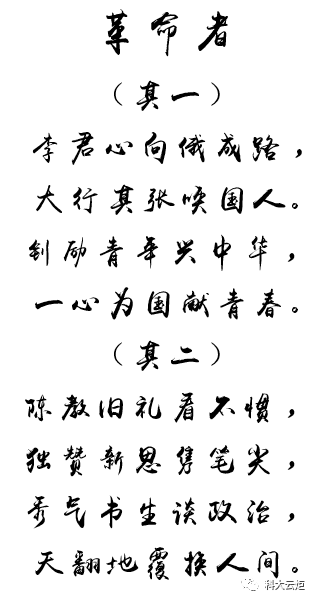 革命者
（其一）
李君心向俄成路，
大行其张唤国人。
钊励青年兴中华，
一心为国献青春。
（其二）
陈教旧礼看不惯，
独赞新思隽笔尖，
秀气书生谈政治，
天翻地覆换人间。
科大云炬